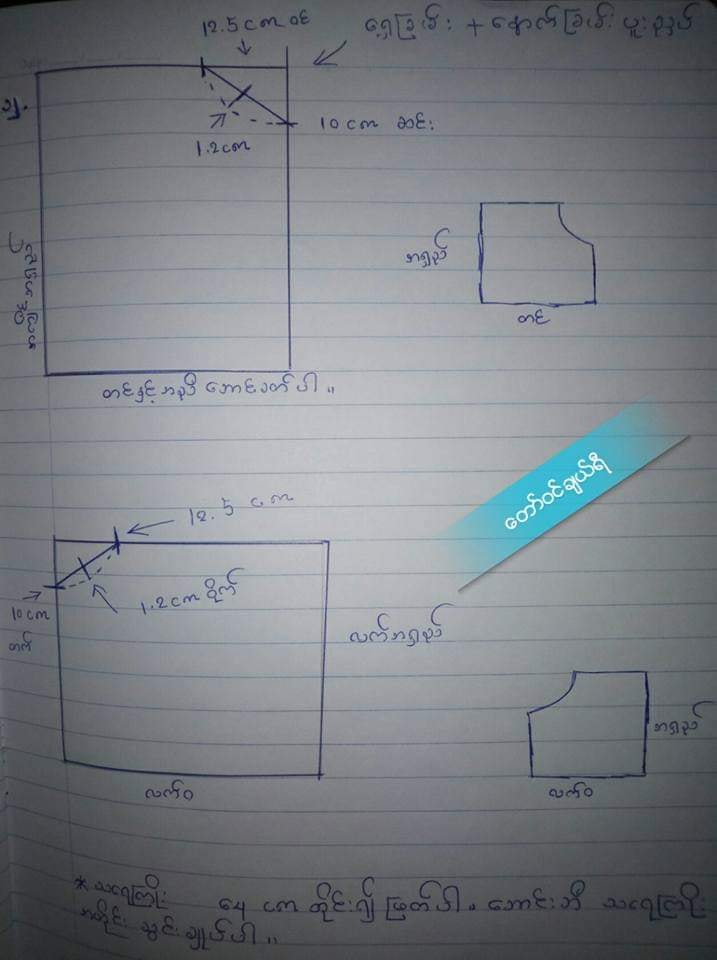 12.5 cm ဝင်
ရှေ့ခြမ်း + နောက်ခြမ်း ပူးညှပ်
၅.
10 cm ဆင်း
1.2 cm
အရှည်
တင်
တင်နှင့်အညီ ဘောင်ခတ်ပါ ။
တော်ဝင်ချယ်ရီ
12.5 cm
1.2 cm ဝိုက်
10 cm
တက်
လက်အရှည်
အရှည်
လက်ဝ
လက်ဝ
* သရေကြိုး ၄၄ cm တိုင်း၍ ဖြတ်ပါ ။ ဘောင်းဘီ သရေကြိုး
အတိုင်း သွင်းချုပ်ပါ ။